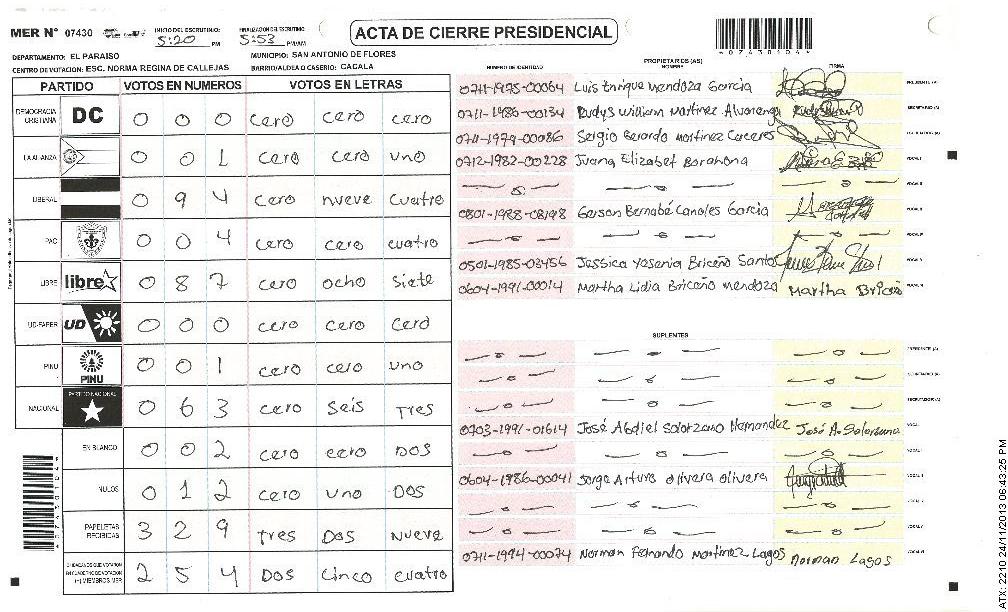 MER N° 07430
INICIO DEL ESCRUTINIO: 5:20 PM
FINALIZACION DEL ESCRUTINIO: 5:53 PM/AM
ACTA DE CIERRE PRESIDENCIAL
DEPARTAMENTO: EL PARAISO
MUNICIPIO: SAN ANTONIO DE FLORES
CENTRO DE VOTACION: ESC. NORMA REGINA DE CALLEJAS
BARRIO/ALDEA O CASERIO: CACALA
PARTIDO VOTOS EN NUMEROS VOTOS EN LETRAS
DEMOCRACIA CRISTIANA DC 0 0 0 cero cero cero
LA ALIANZA 0 0 1 cero cero uno
LIBERAL 0 9 4 cero nueve cuatro
PAC 0 0 4 cero cero cuatro
LIBRE libre 0 8 7 cero ocho siete
UD-FAPER UD 0 0 0 cero cero cero
PINU PINU 0 0 1 cero cero uno
NACIONAL PARTIDO NACIONAL 0 6 3 cero seis Tres
EN BLANCO 0 0 2 cero cero DOS
NULOS 0 1 2 cero uno DOS
PAPELETAS RECIBIDAS 3 2 9 Tres DOS Nueve
2 5 4 DOS cinco cuatro
NUMERO DE IDENTIDAD PROPIETARIOS (AS) NOMBRE FIRMA
0711-1975-00064 Luis Enrique Mendoza Garcia PRESIDENTE (A)
0711-1986-00134 Rudys William Martinez Alvorenga SECRETARIO (A)
0711-1979-00086 Sergio Gerardo Martinez Caceres ESCRUTADOR (A)
0712-1982-00228 Juana Elizabet Barahona VOCAL I
VOCAL II
0801-1988-08198 Gerson Bernabé Canales Garcia VOCAL III
VOCAL IV
0501-1985-03456 Jessica Yesenia Briceño Santos VOCAL V
0604-1991-00014 Martha Lidia Briceño Mendoza Martha Briceño VOCAL VI
SUPLENTES
PRESIDENTE (A)
SECRETARIO (A)
ESCRUTADOR (A)
0703-1991-01614 José Abdiel Solorzano Hernandez José A. Solorzano VOCAL I
VOCAL II
0604-1986-00041 Jorge Arturo Olivera Olivera VOCAL III
VOCAL IV
VOCAL V
0711-1994-00074 Norman Fernando Martinez Lagos Norman Lagos VOCAL VI
ATX: 2210 24/11/2013 06:43:25 PM